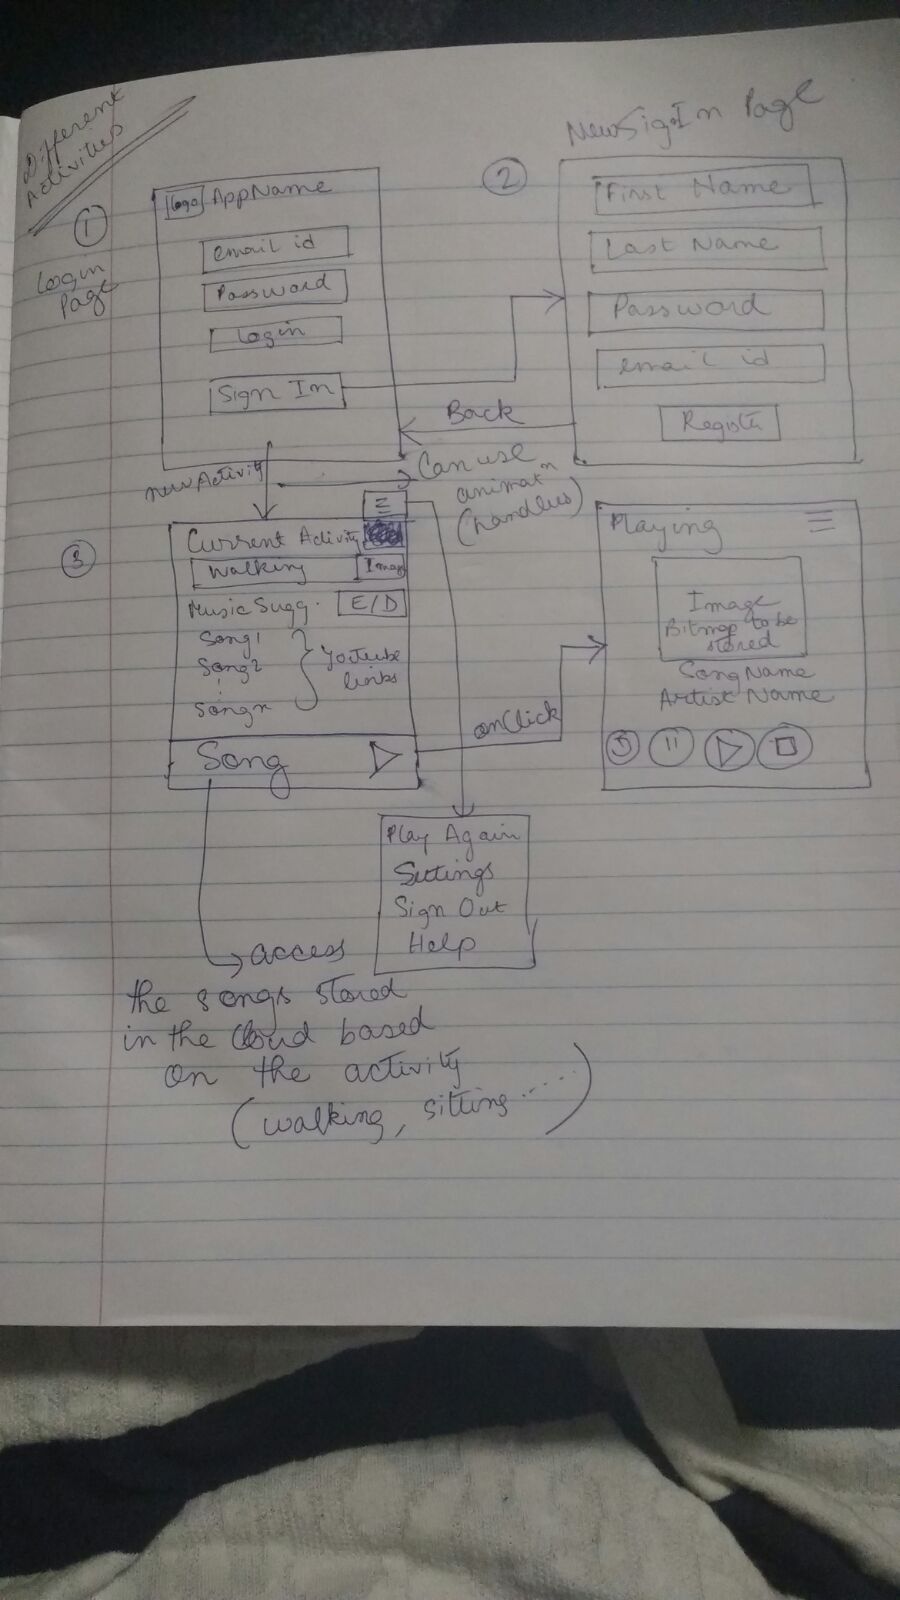 Different
Activities
1
Login
Page
Logo AppName
email id
Password
Login
Sign In
2
NewSignIn Page
First Name
Last Name
Password
email id
Register
Back
newActivity
Can use
animatn
(handlers)
3
Current Activity
Walking
Image
Music Sugg.
E/D
Song1
Song2
Songn
Youtube
links
Song
onClick
Playing
Image
Bitmap to be
stored
SongName
Artist Name
Play Again
Settings
Sign Out
Help
access
the songs stored
in the cloud based
on the activity
(walking, sitting.....)